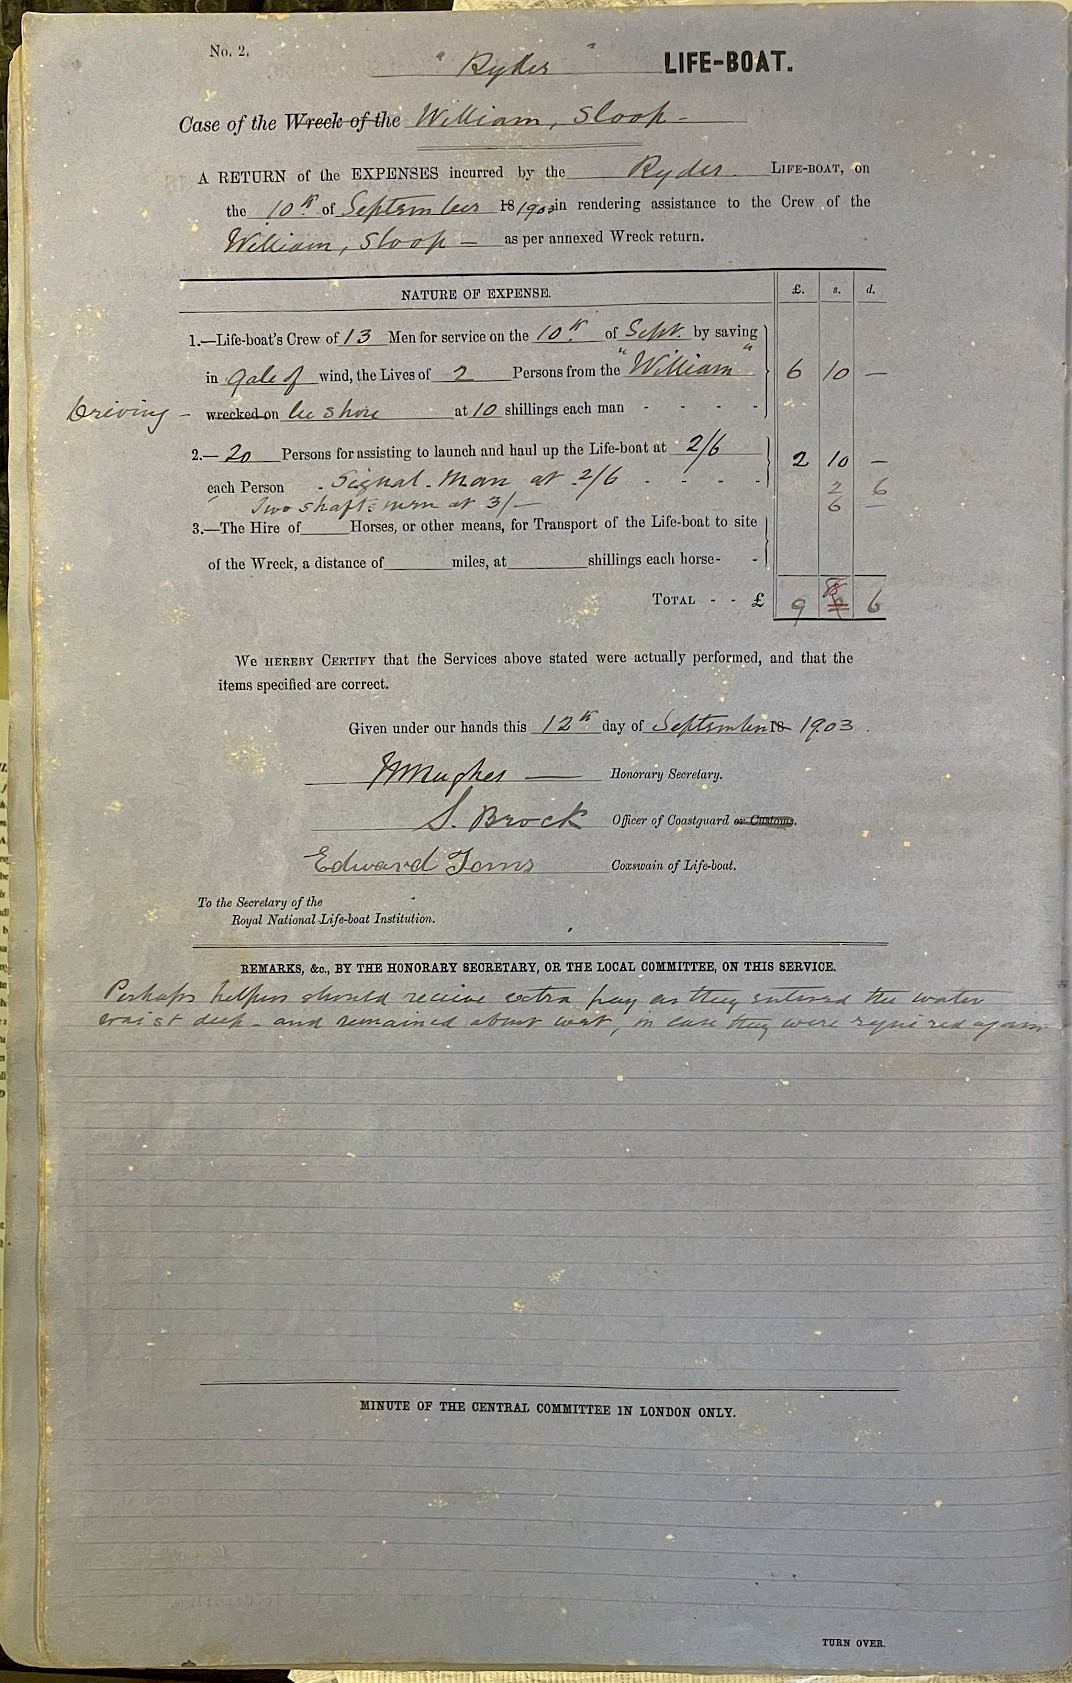 No. 2.
" Ryder " LIFE-BOAT.
Case of the Wreck of the William, Sloop -
A RETURN of the EXPENSES incurred by the Ryder LIFE-BOAT, on
the 10th of September 18 1903 in rendering assistance to the Crew of the
William, Sloop — as per annexed Wreck return.
NATURE OF EXPENSE. £. s. d.
1.—Life-boat's Crew of 13 Men for service on the 10th of Sept. by saving
in gale of wind, the Lives of 2 Persons from the "William" 6 10 —
Driving - wrecked on lee shore at 10 shillings each man - - - -
2.— 20 Persons for assisting to launch and haul up the Life-boat at 2/6 2 10 —
each Person . Signal-Man at 2/6 - - - - 2 6
Two shaftsmen at 3/— 6 —
3.—The Hire of Horses, or other means, for Transport of the Life-boat to site
of the Wreck, a distance of miles, at shillings each horse- -
TOTAL - - £ 9 8 6
We HEREBY CERTIFY that the Services above stated were actually performed, and that the
items specified are correct.
Given under our hands this 12th day of September 18 1903.
Hughes — Honorary Secretary.
S. Brock Officer of Coastguard or Customs.
Edward Toms Coxswain of Life-boat.
To the Secretary of the
Royal National Life-boat Institution.
REMARKS, &c., BY THE HONORARY SECRETARY, OR THE LOCAL COMMITTEE, ON THIS SERVICE.
Perhaps helpers should receive extra pay as they entered the water
waist deep - and remained about wet, in case they were required again
MINUTE OF THE CENTRAL COMMITTEE IN LONDON ONLY.
TURN OVER.